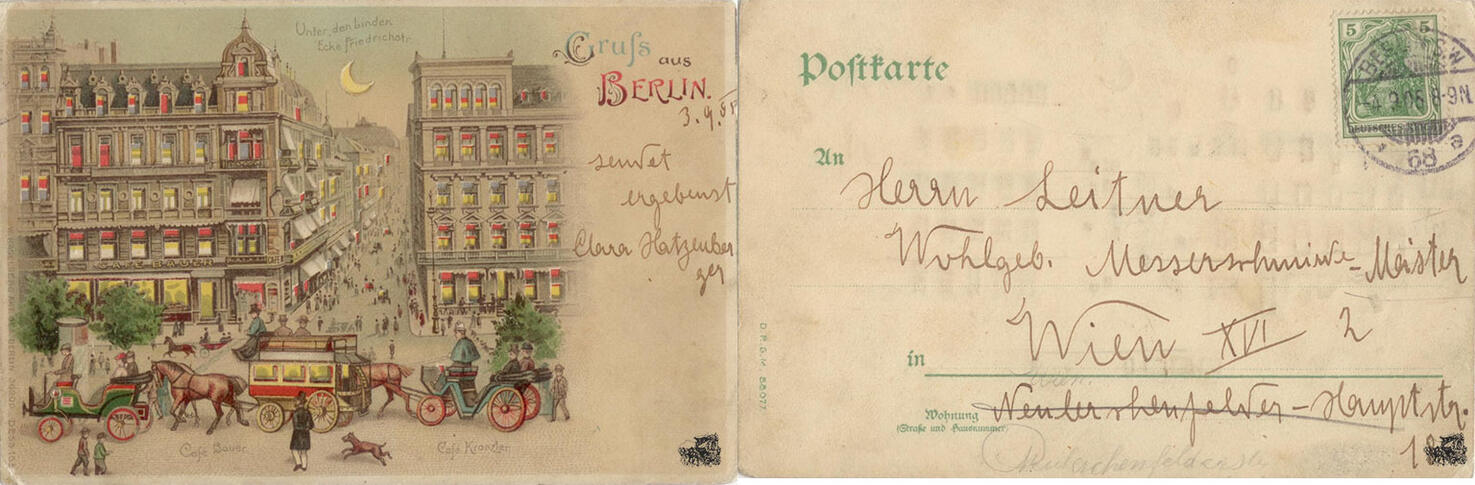 Unter den Linden
Ecke Friedrichstr.
Gruſs aus
BERLIN.
3.9.
sendet
ergebenst
Clara Hatzenber
ger
CAFE BAUER
Café Bauer
Café Kranzler
Poſtkarte
5 5
DEUTSCHES REICH
BERLIN
8-9N
68 a
An
Herrn Leitner
Wohlgeb. Messerschmiede-Meister
Wien XVI 2
in
Wien.
Wohnung
(Straße und Hausnummer)
Neulerchenfelder-Hauptstr.
D.R.G.M. 88077.